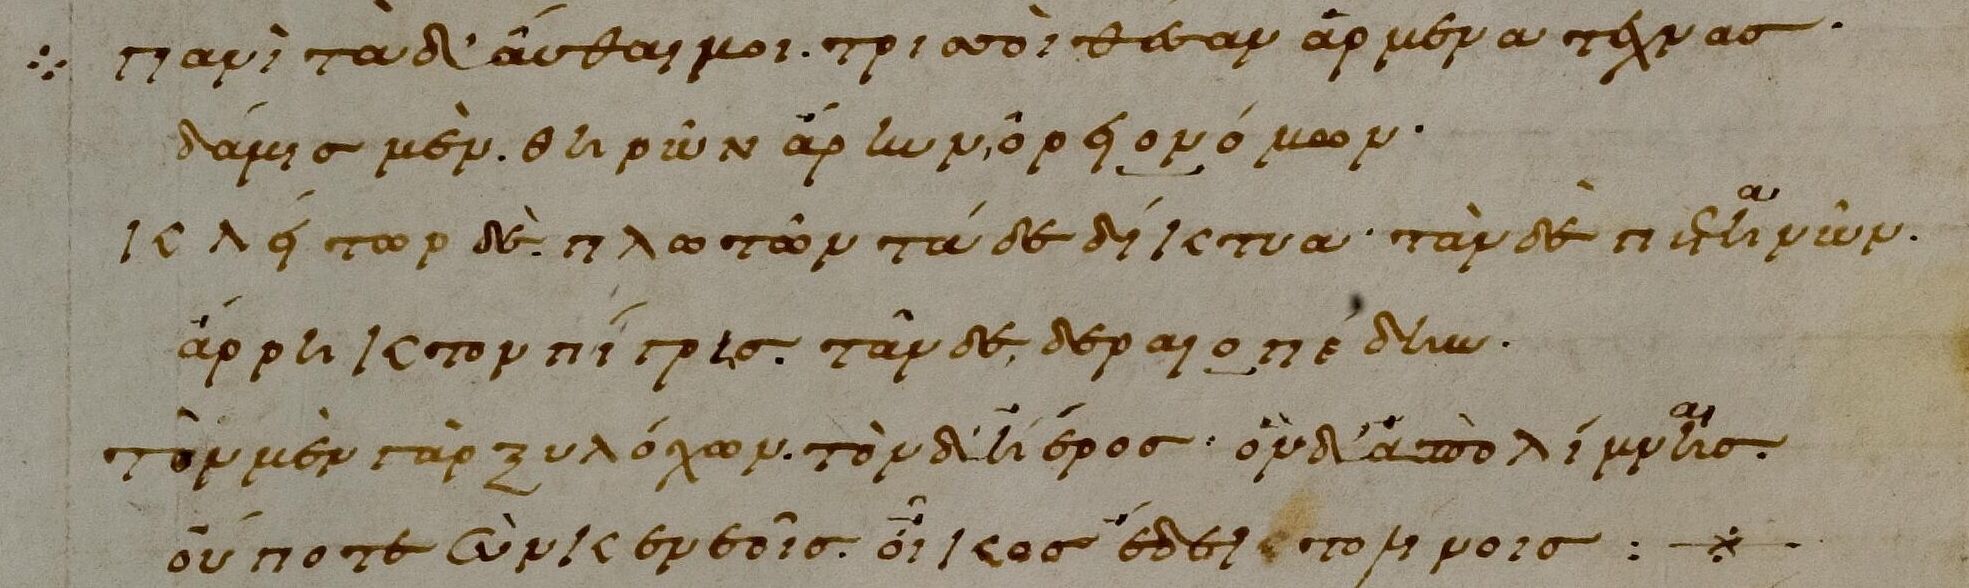 πανὶ τὰ δ' ἄυθαιμοι. τρισσοὶ θέσαν ἄρμενα τέχνας·
δάμισ μὲν. θηρῶν ἄρκυν, ὀρειονόμων·
κλείτωρ δὲ. πλωτῶν τάδε δίκτυα· τὰν δὲ πτηνῶν.
ἄρρηκτον πίγρησ. τᾶν δε, δεραιοπέδην.
τὸν μὲν γὰρ ξυλόχων. τὸν δ' ἠέρος· ὃν δ' ἀπὸ λίμνησ.
οὔποτε σὺν κενεοῖσ. οἶκοσ ἔδεκτο λίνοισ :